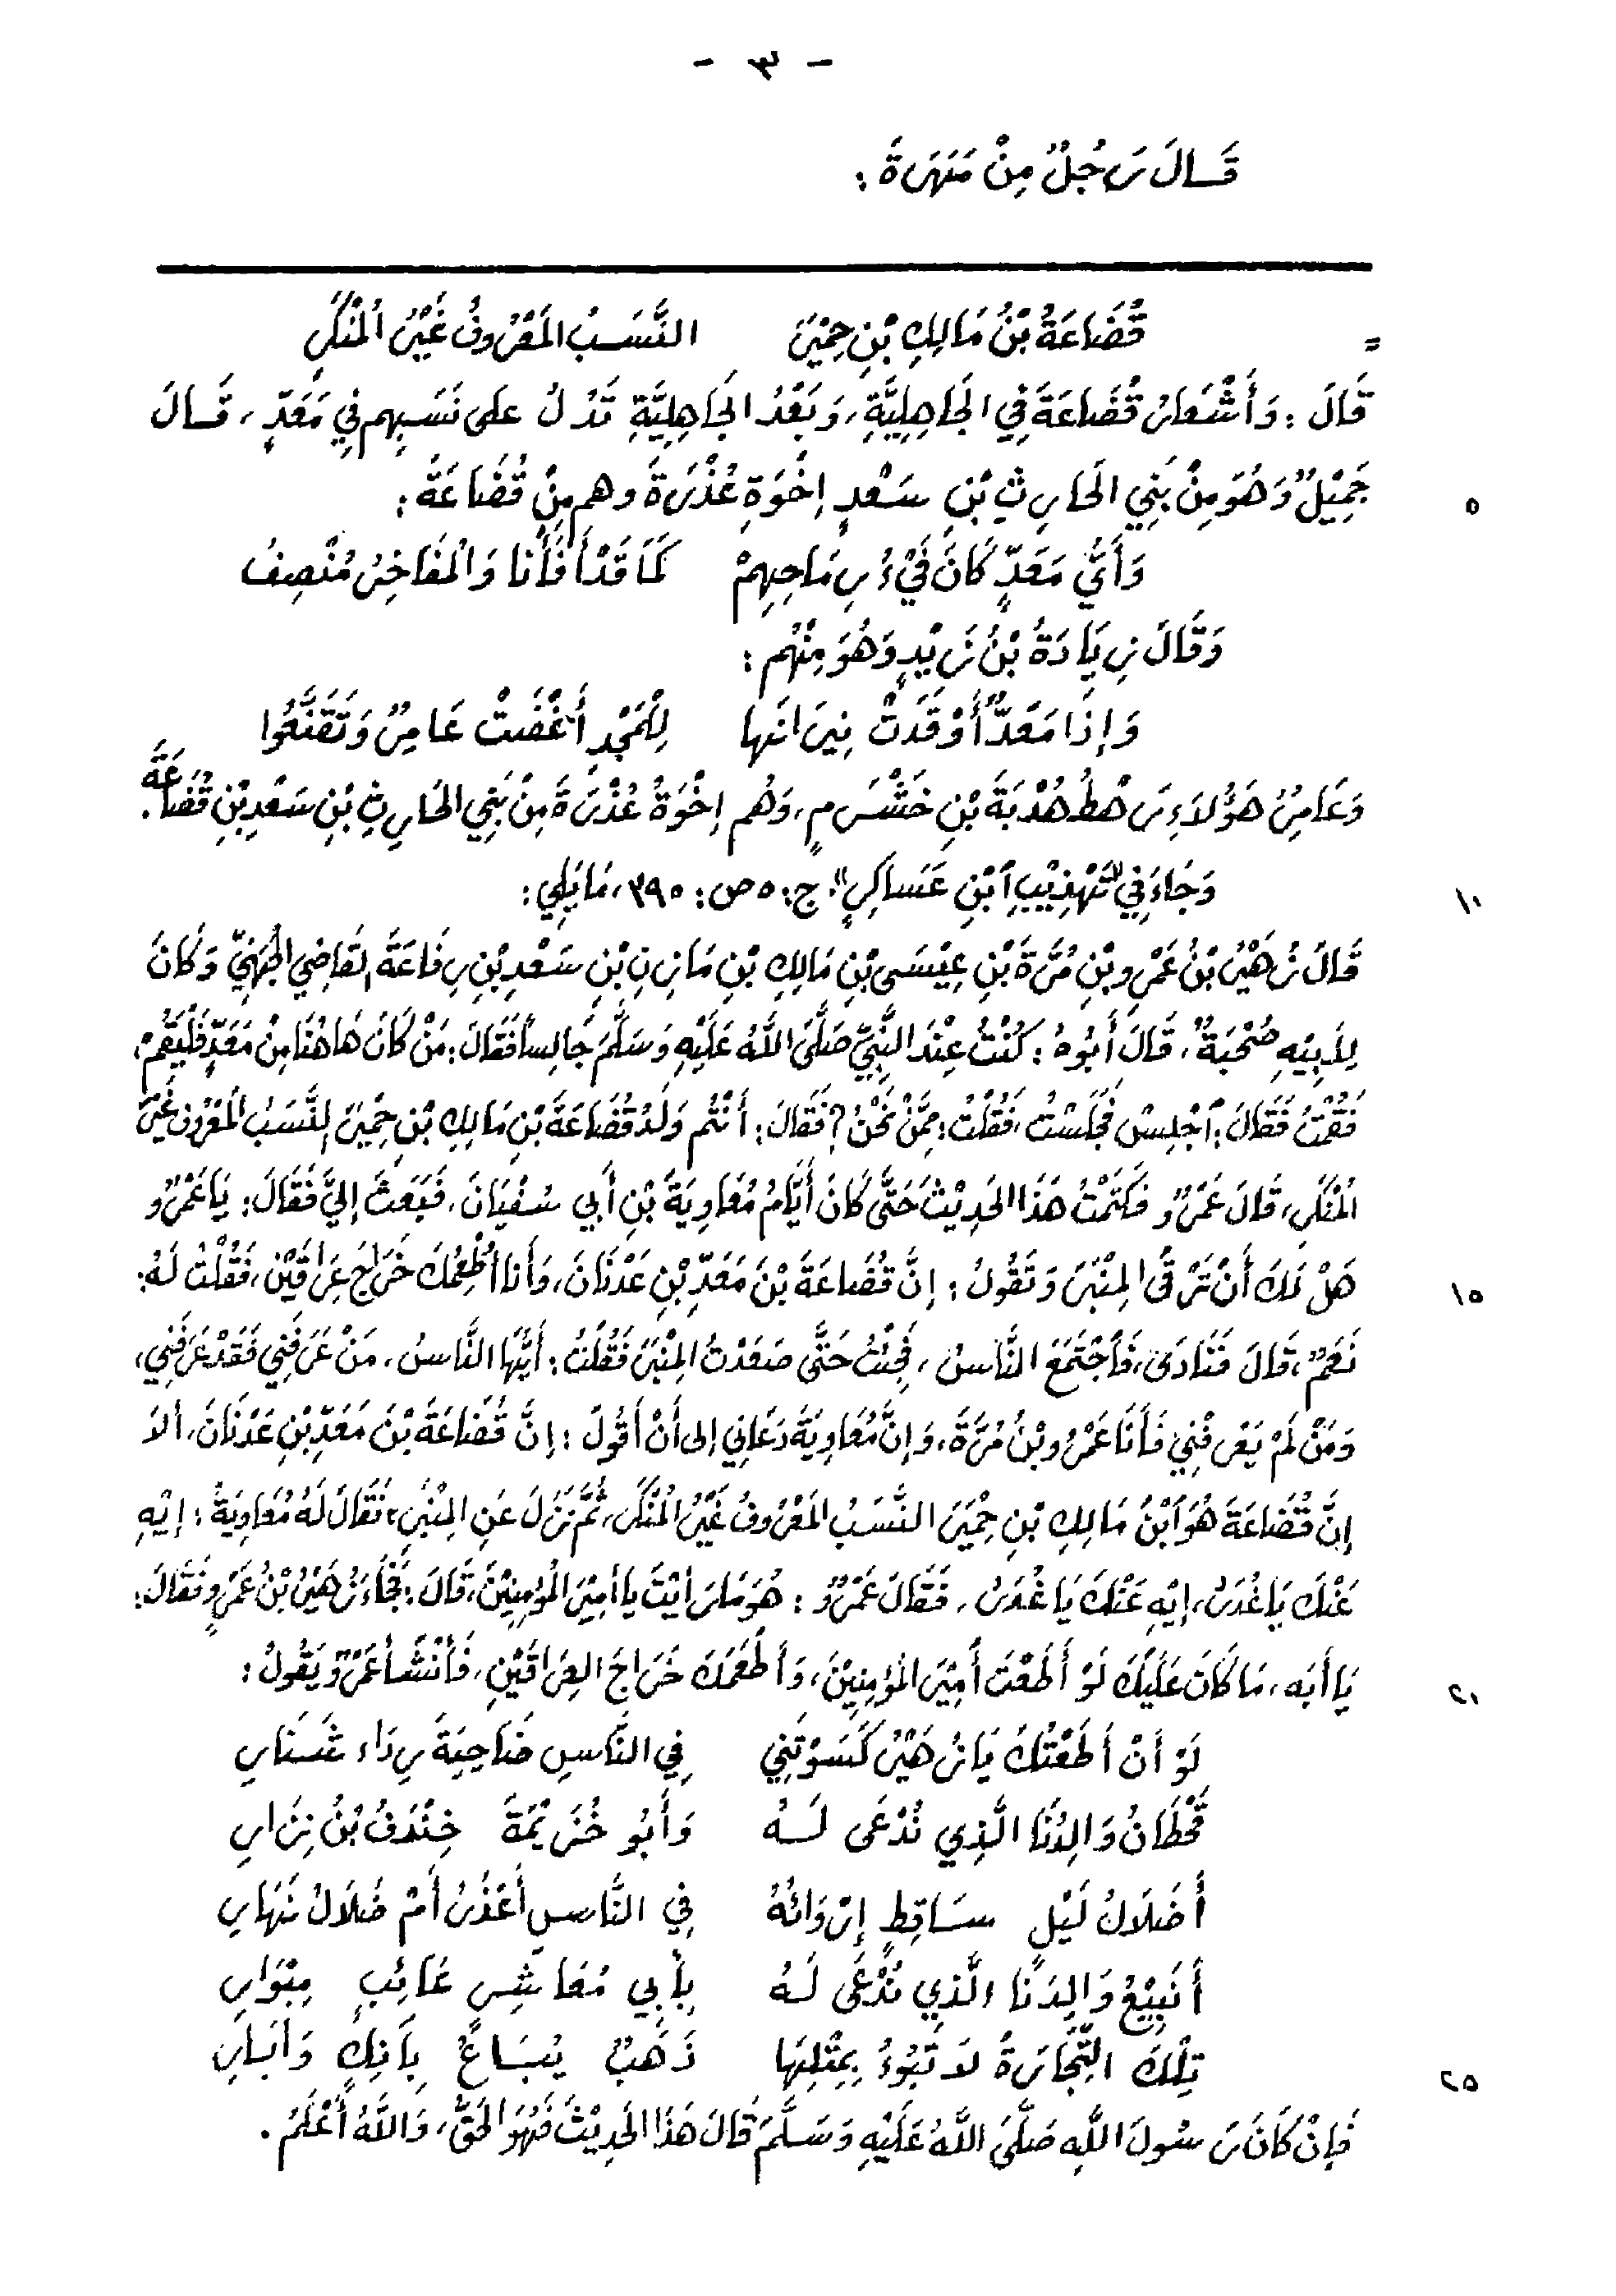 - ٣ -
قَالَ رَجُلٌ مِنْ مَهَرَةَ :
= قُضَاعَةُ بْنُ مَالِكِ بْنِ حِمْيَرَ النَّسَبُ المَعْرُوفُ غَيْرُ المُنْكَرِ
قَالَ : وَأَشْعَارُ قُضَاعَةَ فِي الجَاهِلِيَّةِ ، وَبَعْدُ الجَاهِلِيَّةِ تَدُلُ على نَسَبِهِم فِي مَعَدٍّ ، قَالَ
٥ جَمِيْلٌ وَهُوَ مِنْ بَنِي الحَارِثِ بْنِ سَعْدٍ إِخْوَةِ عُذْرَةَ وهم مِنْ قُضَاعَةَ :
وَأَيُّ مَعَدٍّ كَانَ فَيْءُ رِمَاحِهِمْ كَمَا قَدْ أَفَأْنَا وَالْمُفَاخِرُ مُنْصِفُ
وَقَالَ زِيَادَةُ بْنُ زَيْدٍ وَهُوَ مِنْهُم :
وَإِذَا مَعَدٌّ أَوْقَدَتْ نِيرَانَها لِلْمَجْدِ أَغْضَتْ عَامِرٌ وَتَقَنَّعُوا
وَعَامِرُ هَؤُلاَءِ رَهْطُ هُدْبَةَ بْنِ خَشْرَمٍ ، وَهُم إِخْوَةُ عُذْرَةَ مِنْ بَنِي الحَارِثِ بْنِ سَعْدِ بْنِ قُضَاعَةَ .
١٠ وَجَاءَ فِي "تَهْذِيْبِ ٱبْنِ عَسَاكِرٍ". ج: ٥ ص: ٣٩٥ ، مَا يَلِي :
قَالَ زُهَيْرُ بْنُ عَمْرِو بْنِ مُرَّةَ بْنِ عِيْسَى بْنِ مَالِكِ بْنِ مَازِنِ بْنِ سَعْدِ بْنِ رِفَاعَةَ القَاضِي الجُهَنِيّ وَكَانَ
لِأَبِيْهِ صُحْبَةٌ ، قَالَ أَبُوهُ : كُنْتُ عِنْدَ النَّبِيِّ صَلَّى اللَّهُ عَلَيْهِ وَسَلَّمَ جَالِساً فَقَالَ : مَنْ كَانَ هَا هُنَا مِنْ مَعَدٍّ فَلْيَقُمْ ،
فَقُمْتُ فَقَالَ : ٱجْلِسْ فَجَلَسْتُ ، فَقُلْتُ : مِمَّنْ نَحْنُ ؟ فَقَالَ : أَنْتُم وَلَدُ قُضَاعَةَ بْنِ مَالِكِ بْنِ حِمْيَرَ النَّسَبُ المَعْرُوفُ غَيْرُ
المُنْكَرِ ، قَالَ عَمْرٌو فَكَتَمْتُ هَذَا الحَدِيْثَ حَتَّى كَانَ أَيَّامُ مُعَاوِيَةَ بْنِ أَبي سُفْيَانَ ، فَبَعَثَ إِليَّ فَقَالَ : يَا عَمْرُو
١٥ هَلْ لَكَ أَنْ تَرْقَى المِنْبَرَ وَتَقُولُ : إِنَّ قُضَاعَةَ بْنَ مَعَدِّ بْنِ عَدْنَانَ ، وَأَنا أُطْعِمُكَ خَرَاجَ عِرَاقَيْنِ ، فَقُلْتُ لَهُ :
نَعَمْ ، قَالَ فَنَادَى ، فَٱجْتَمَعَ النَّاسُ ، فَجِئْتُ حَتَّى صَعَدْتُ المِنْبَرَ فَقُلْتُ : أَيُّها النَّاسُ ، مَنْ عَرَفَنِي فَقَدْ عَرَفَنِي ،
وَمَنْ لَمْ يَعْرِفْنِي فَأَنَا عَمْرُو بْنُ مُرَّةَ ، وَإِنَّ مُعَاوِيَةَ دَعَانِي إِلى أَنْ أَقُولَ : إِنَّ قُضَاعَةَ بْنَ مَعَدِّ بْنِ عَدْنَانَ ، أَلاَ
إِنَّ قُضَاعَةَ هُوَ ٱبْنُ مَالِكِ بْنِ حِمْيَرَ النَّسَبُ المَعْرُوفُ غَيْرُ المُنْكَرِ ، ثُمَّ نَزَلَ عَنِ المِنْبَرِ ، فَقَالَ لَهُ مُعَاوِيَةُ : إِيْهِ
عَنْكَ يَا غُدَرُ ، إِيْهِ عَنْكَ يَا غُدَرُ ، فَقَالَ عَمْرٌو : هُوَ مَا رَأَيْتَ يا أَمِيْرَ المُؤْمِنِيْنَ ، قَالَ : فَجَاءَ زُهَيْرُ بْنُ عَمْرٍو فَقَالَ :
٢٠ يَا أَبَه ، مَا كَانَ عَلَيْكَ لَوْ أَطَعْتَ أَمِيْرَ المُؤْمِنِيْنَ ، وَأَطْعَمَكَ خَرَاجَ العِرَاقَيْنِ ، فَأَنْشَأَ عَمْرٌو يَقُولُ :
لَوْ أَنْ أَطَعْتُكَ يَا زُهَيْرُ كَسَوْتَنِي فِي النَّاسِ ضَاحِيَةَ رِدَاء شَنَارِ
قَحْطَانُ وَالِدُنَا الَّذِي نُدْعَى لَهُ وَأَبُو خُزَيْمَةَ خِنْدَفُ بْنُ نِزَارِ
أَضَلاَلُ لَيْلٍ سَاقِطٍ إِرْوَاقُهُ فِي النَّاسِ أَعْذَرُ أَمْ ضَلاَلُ نَهَارِ
أَنَبِيْعُ وَالِدَنَا الَّذِي نُدْعَى لَهُ بِأَبِي مُعَاشِرٍ غَائِبٍ مِتْوَارِ
٢٥ تِلْكَ التِّجَارَةُ لاَ تَبُوءُ بِمِثْلِهَا ذَهَبٌ يُبَاعُ بِآنِكٍ وَأَبَارِ
فَإِنْ كَانَ رَسُولَ اللَّهِ صَلَّى اللَّهُ عَلَيْهِ وَسَلَّمَ قَالَ هَذَا الحَدِيْثَ فَهُوَ الحَقُّ ، وَاللَّهُ أَعْلَمُ .